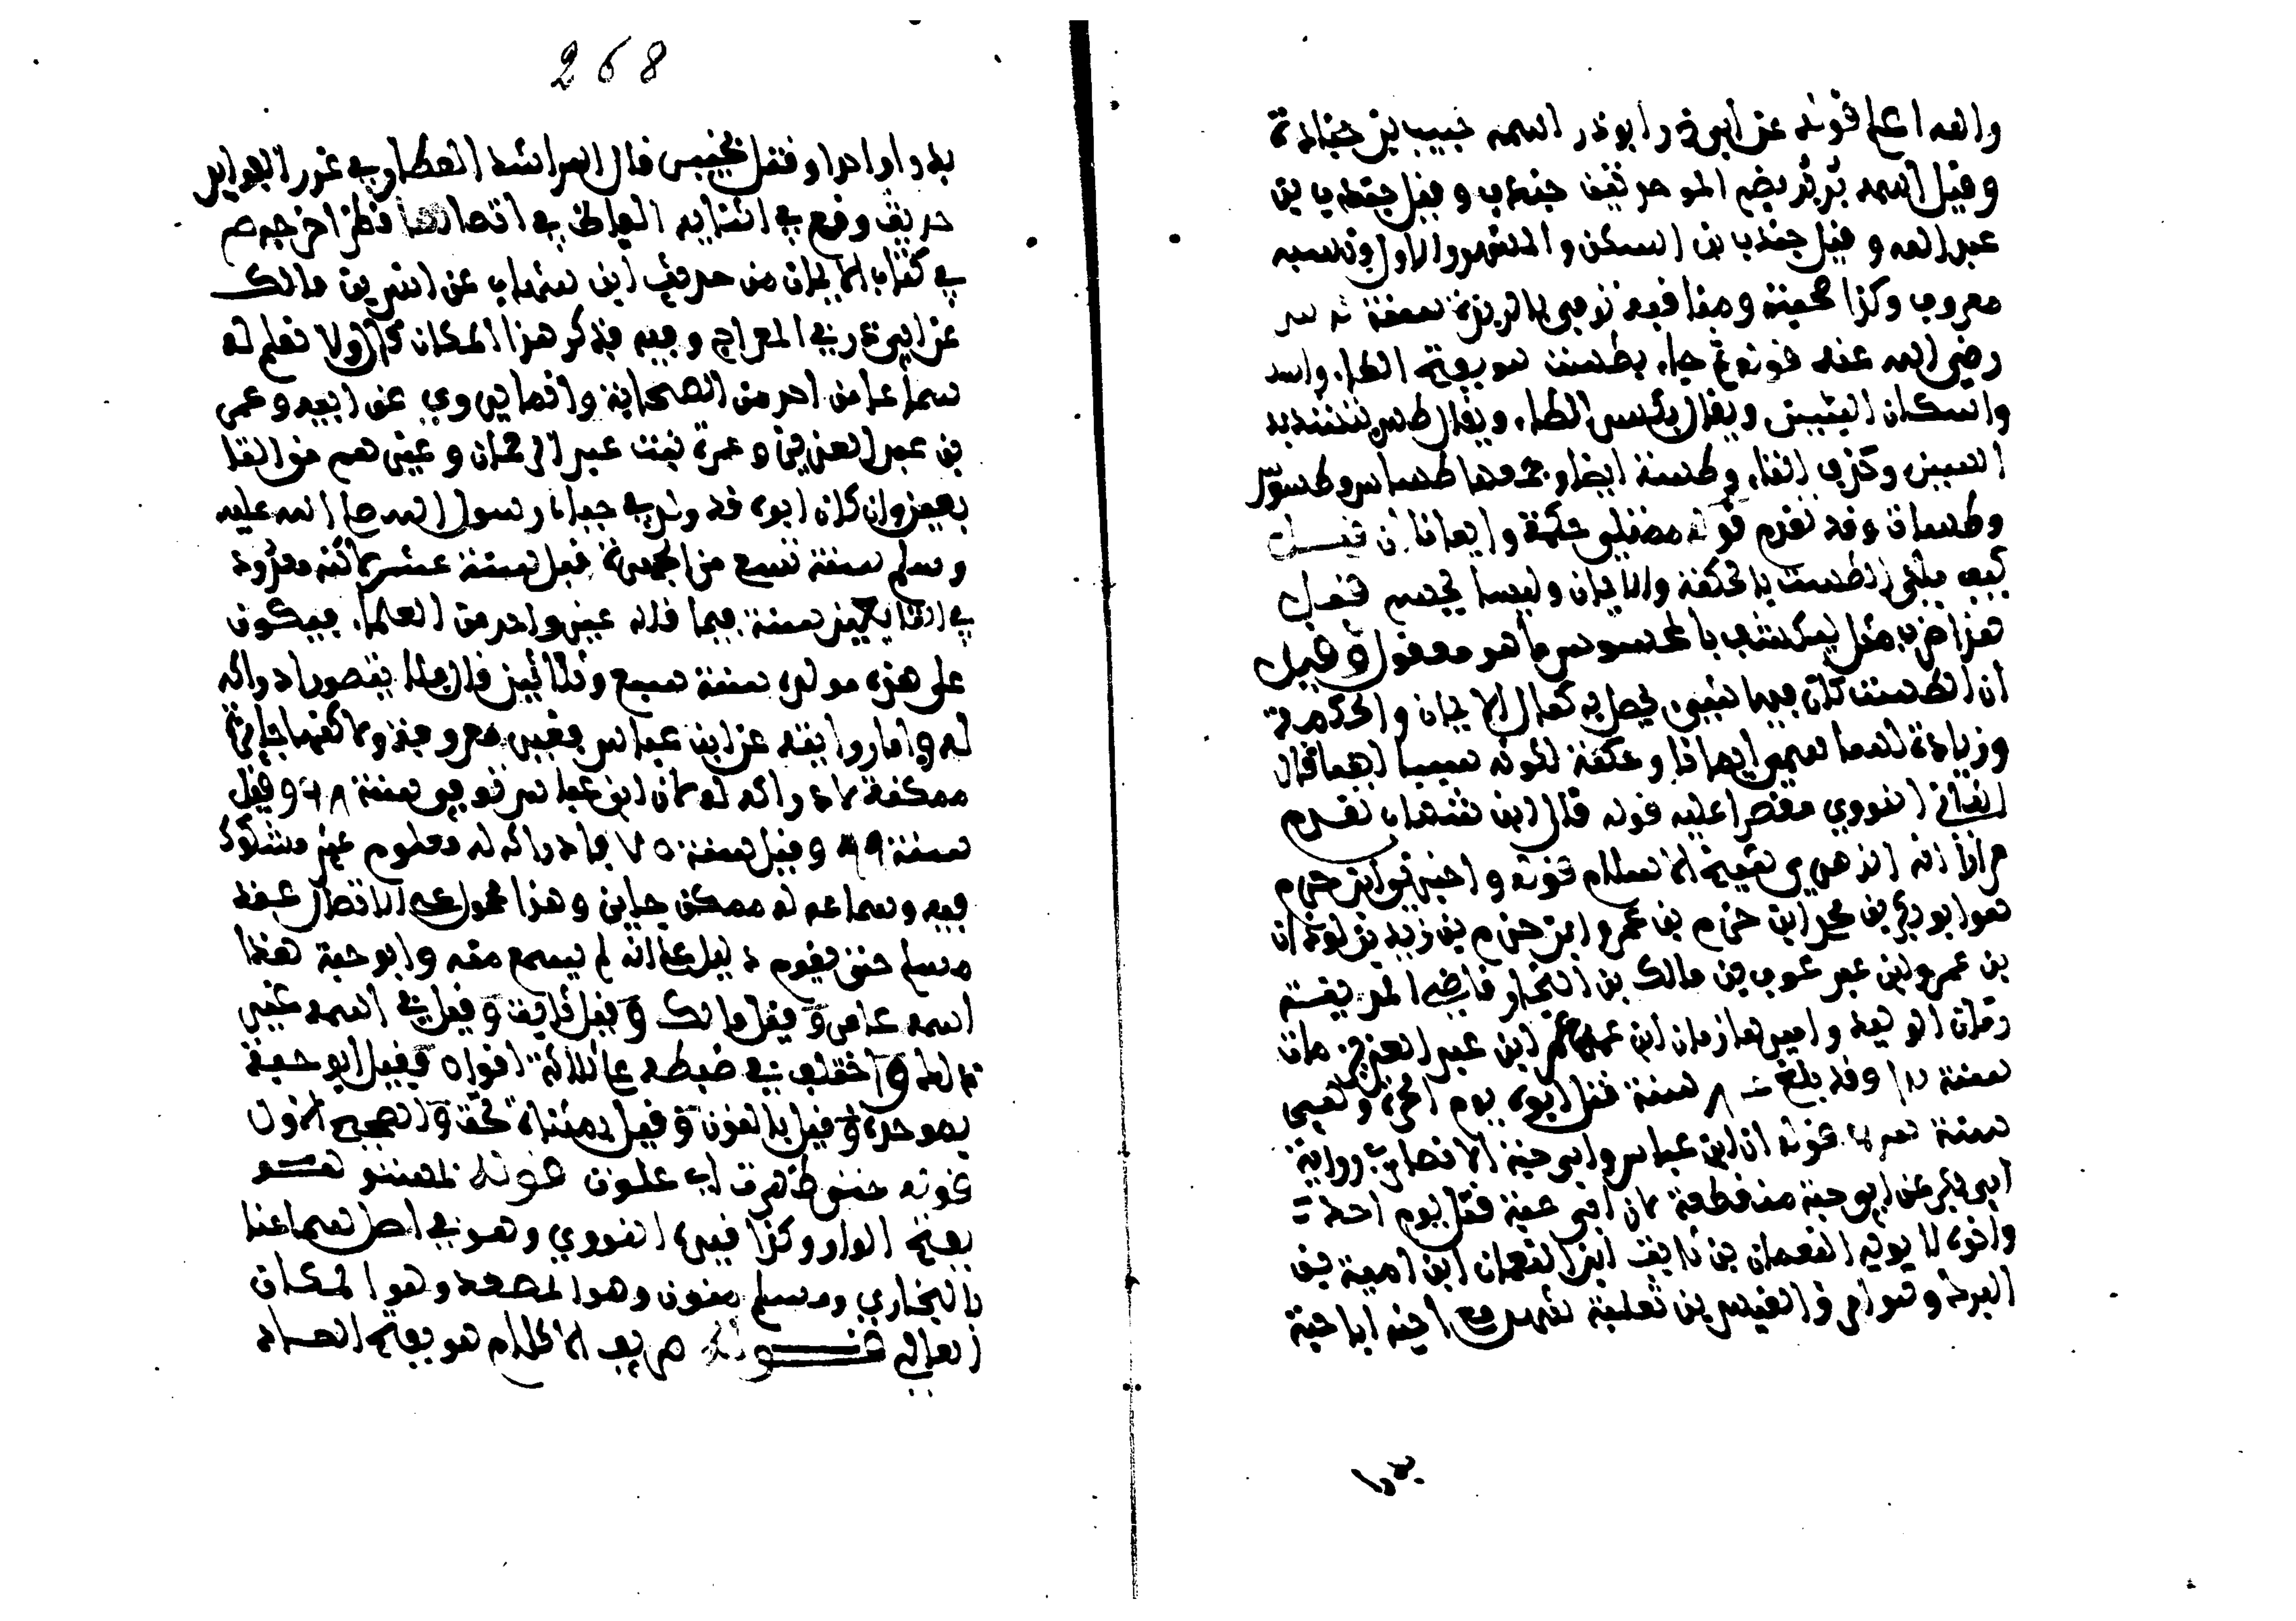 والله اعلم قوله عن ابي ذر وابوذر اسمه جندب بن جنادة
وقيل اسمه برير بضم الموحدتين جندب وقيل جندب بن
عبد الله وقيل جندب بن السكن والمشهور الاول ونسبه
معروف وكذا صحبته ومناقبه توفي بالربذة سنة
رضي الله عنه قوله ثم جاء بطست هو بفتح الطاء
واسكان السين ويقال بكسر الطاء ويقال طس بتشديد
السين وحذف التاء وطسة ايضا وجمعها طساس وطسوس
وطسات وقد تقدم قوله ممتلئ حكمة وايمانا ان قيل
كيف يملى الطست بالحكمة والايمان وليسا بجسم فقل
هذا ضرب مثل ليكشف بالمحسوس ما هو معقول وقيل
ان الطست كان فيها شيى يحصل به كمال الايمان والحكمة
وزيادة لهما فسمي ايمانا وحكمة لكونه سببا لهما قال
الثاني النووي مقتصرا عليه قوله قال ابن شهاب تقدم
مرارا انه الزهري شيخ الاسلام قوله واخبرني ابن حزم
هو ابو بكر بن محمد ابن حزم بن عمرو ابن حزم بن زيد بن لوذان
بن عمرو بن عبد عوف بن مالك بن النجار قاضي المدينة
زمان الوليد واميرها زمان ابن عمر ابن عبد العزيز مات
سنة وقد بلغ سنة قتل ابوه يوم الحرة
سنة قوله ان ابن عباس وابي حبة الانصاري رواية
ابي بكر عن ابي حبة منقطعة لان ابي حبة قتل يوم احد
واخوه لابويه النعمان بن ثابت ابن النعمان ابن امية بن
البرك وهو امرؤ القيس بن ثعلبة شهد مع اخيه ابا حبة
268
بدرا واحدا وقتل بخيبر قال الرشيد العطار في غرر الفوايد
حديث وقع في اثنايه الفاظ في اتصالها نظر اخرجه م
في كتاب الايمان من حديث ابن شهاب عن انس بن مالك
عن ابي ذر في المعراج وفيه فذكر هذا المكان قال ولا نعلم له
سماعا من احد من الصحابة وانما يروي عن ابيه وعمر
بن عبد العزيز وعمرة بنت عبد الرحمان وغيرهم من التا
بعين وان كان ابوه قد ولد في حياة رسول الله صلى الله عليه
وسلم سنة تسع من الهجرة قبل سنة عشر لاكنه معدود
في التابعين سنة فيما قاله غير واحد من العلماء فيكون
على هذه مولده سنة سبع وثلاثين قال فلا يتصور ادراكه
له واما روايته عن ابن عباس فغير معروفة ولاكنها جايزة
ممكنة لادراكه له لان ابن عباس توفي سنة ٦٨ وقيل
سنة ٦٩ وقيل سنة ٧٠ فادراكه له معلوم غير مشكوك
فيه وسماعه له ممكن جايز وهذا محمول على الاتصال عند
مسلم حتى يقوم دليل على انه لم يسمع منه وابو حبة هذا
اسمه عامر وقيل مالك وقيل ثابت وقيل في اسمه غير
ذالك واختلف في ضبطه على ثلاثة اقوال فقيل ابو حبة
بموحدة وقيل بالنون وقيل بمثناة تحت والصحيح الاول
قوله حتى ظهرت اي علوت قوله لمستو هو
بفتح الواو وكذا قيده النووي وهو في اصل سماعنا
بالبخاري ومسلم بنون وهو المصعد وهو المكان
العالي قوله صريف الاقلام هو بفتح الصاد